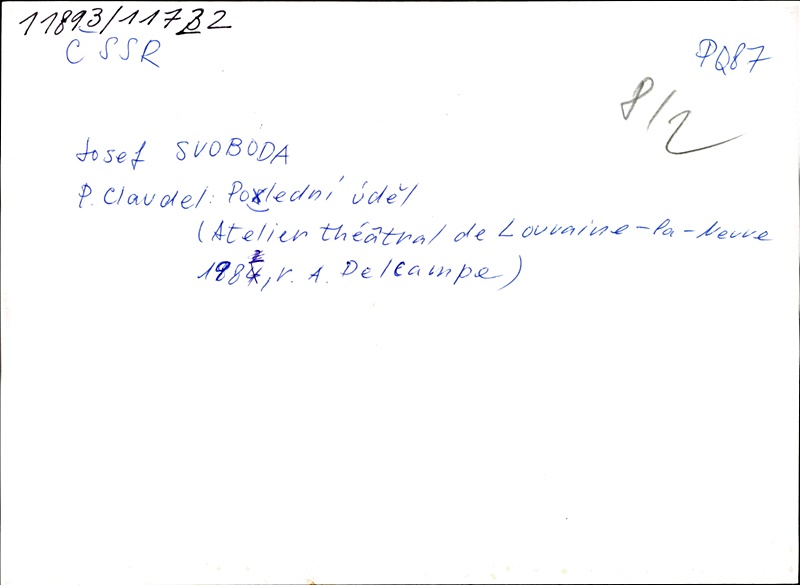 11893/11732
ČSSR
PQ87
8/2
Josef SVOBODA
P. Claudel: Polední úděl
(Atelier théâtral de Louvaine-la-Neuve
198, r. A. Delcampe)